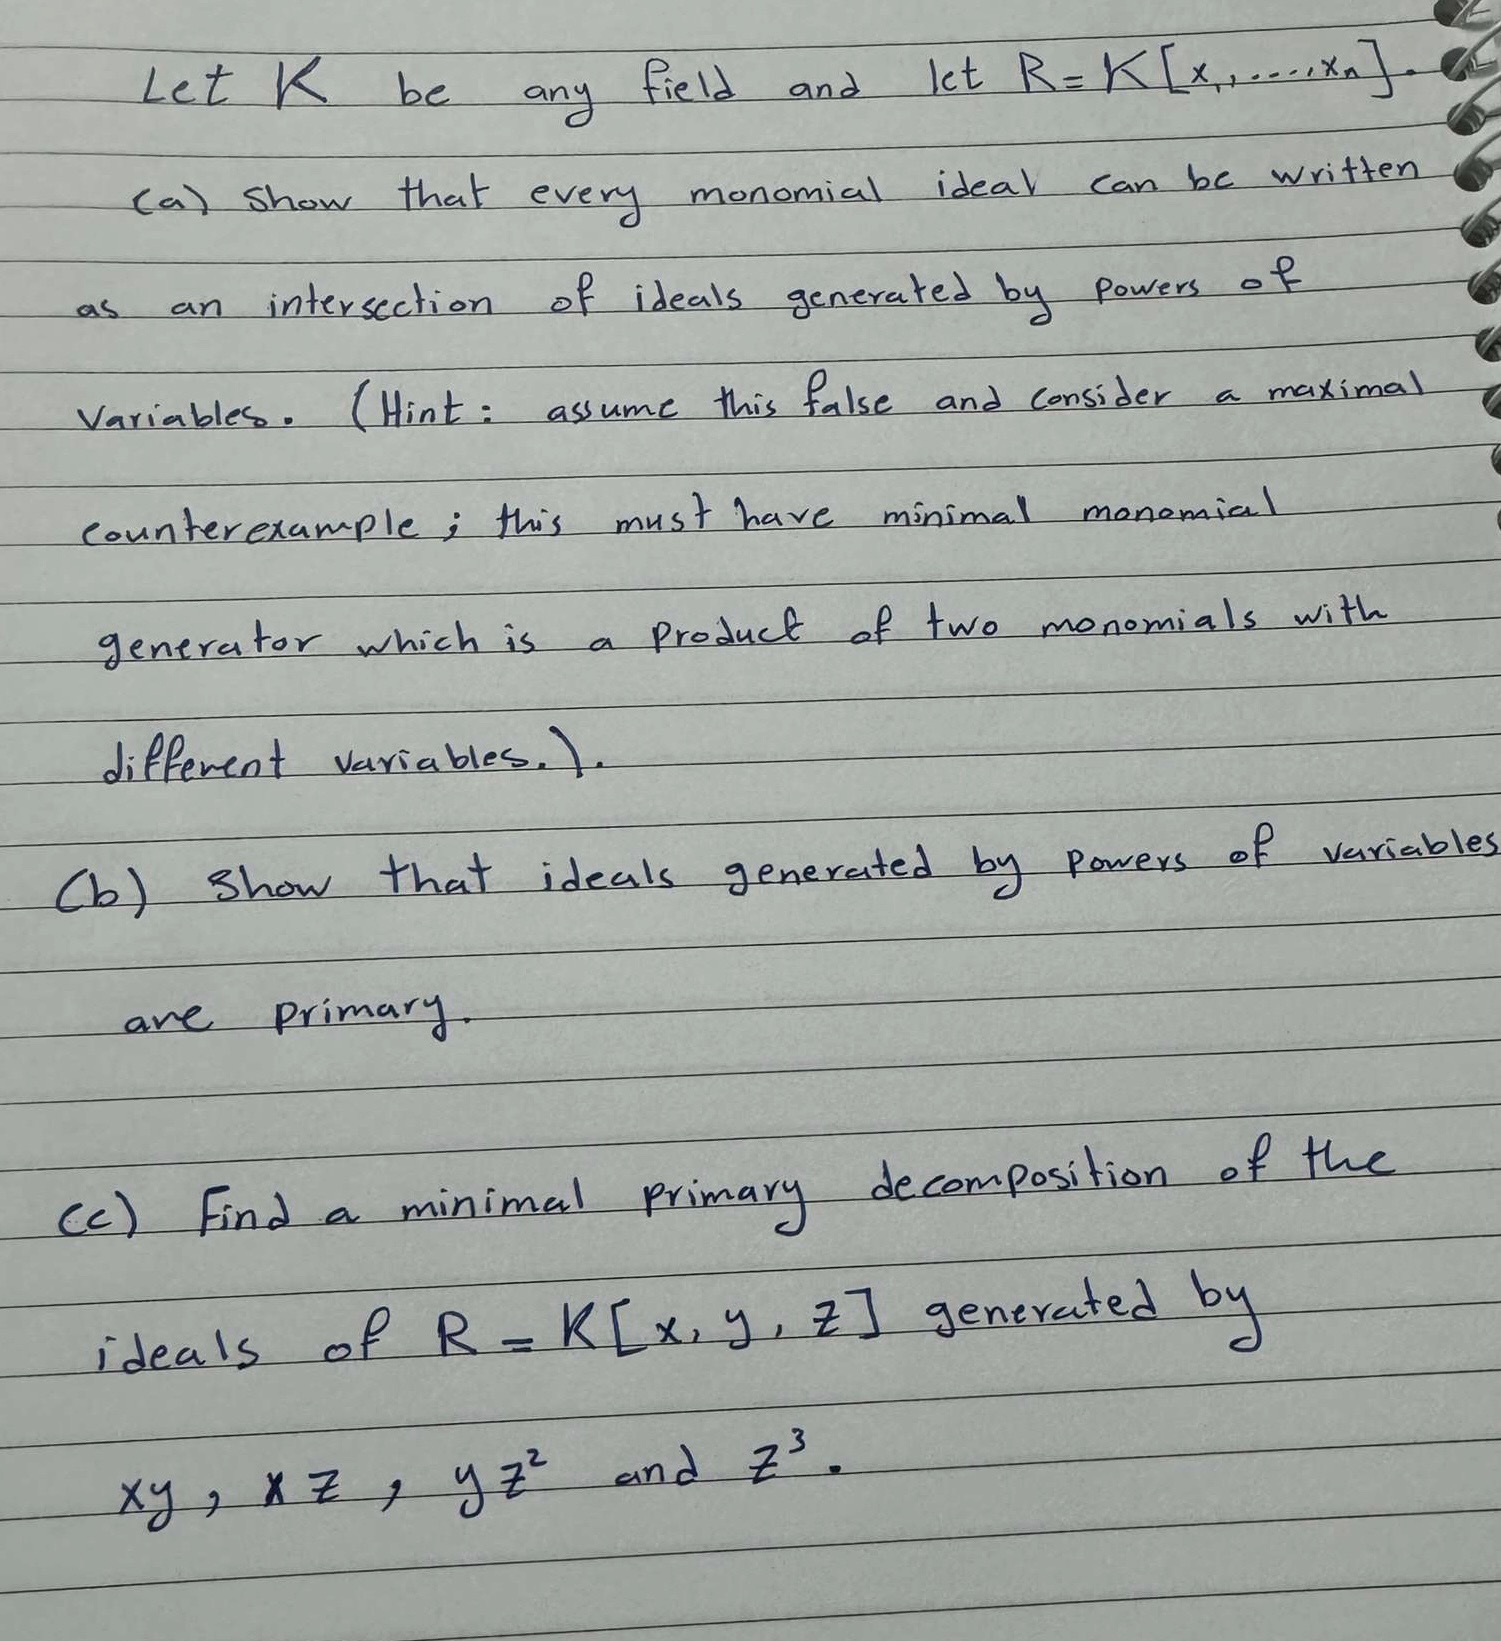 Let K be any field and let R = K[x₁,....,xₙ].
(a) Show that every monomial ideal can be written
as an intersection of ideals generated by powers of
variables. (Hint: assume this false and consider a maximal
counterexample; this must have minimal monomial
generator which is a product of two monomials with
different variables.).
(b) Show that ideals generated by powers of variables
are primary.
(c) Find a minimal primary decomposition of the
ideals of R = K[x, y, z] generated by
xy, xz, yz² and z³.